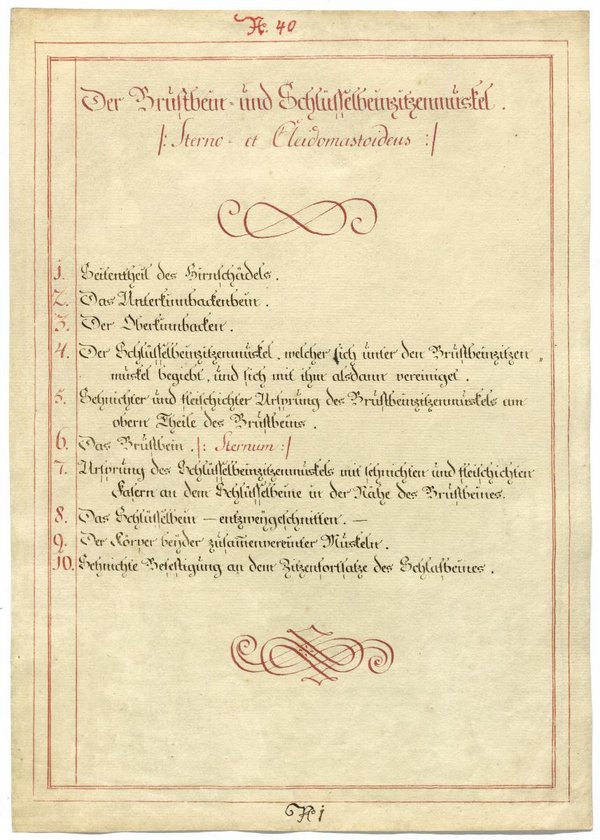 N. 40
Der Brustbein- und Schlüsselbeinzitzenmuskel.
/: Sterno- et Cleidomastoideus :/
1. Seitentheil des Hirnschädels.
2. Das Unterkinnbackenbein.
3. Der Oberkinnbacken.
4. Der Schlüsselbeinzitzenmuskel, welcher sich unter den Brustbeinzitzen„
muskel begiebt, und sich mit ihm alsdann vereiniget.
5. Sehnichter und fleischichter Ursprung des Brustbeinzitzenmuskels am
obern Theile des Brustbeins.
6. Das Brustbein. /: Sternum :/
7. Ursprung des Schlüsselbeinzitzenmuskels mit sehnichten und fleischichten
Fasern an dem Schlüsselbeine in der Nähe des Brustbeines.
8. Das Schlüsselbein — entzweygeschnitten. —
9. Der Körper beyder zusam̅envereinter Muskeln.
10. Sehnichte Befestigung an dem Zitzenfortsatze des Schlafbeines.
N i